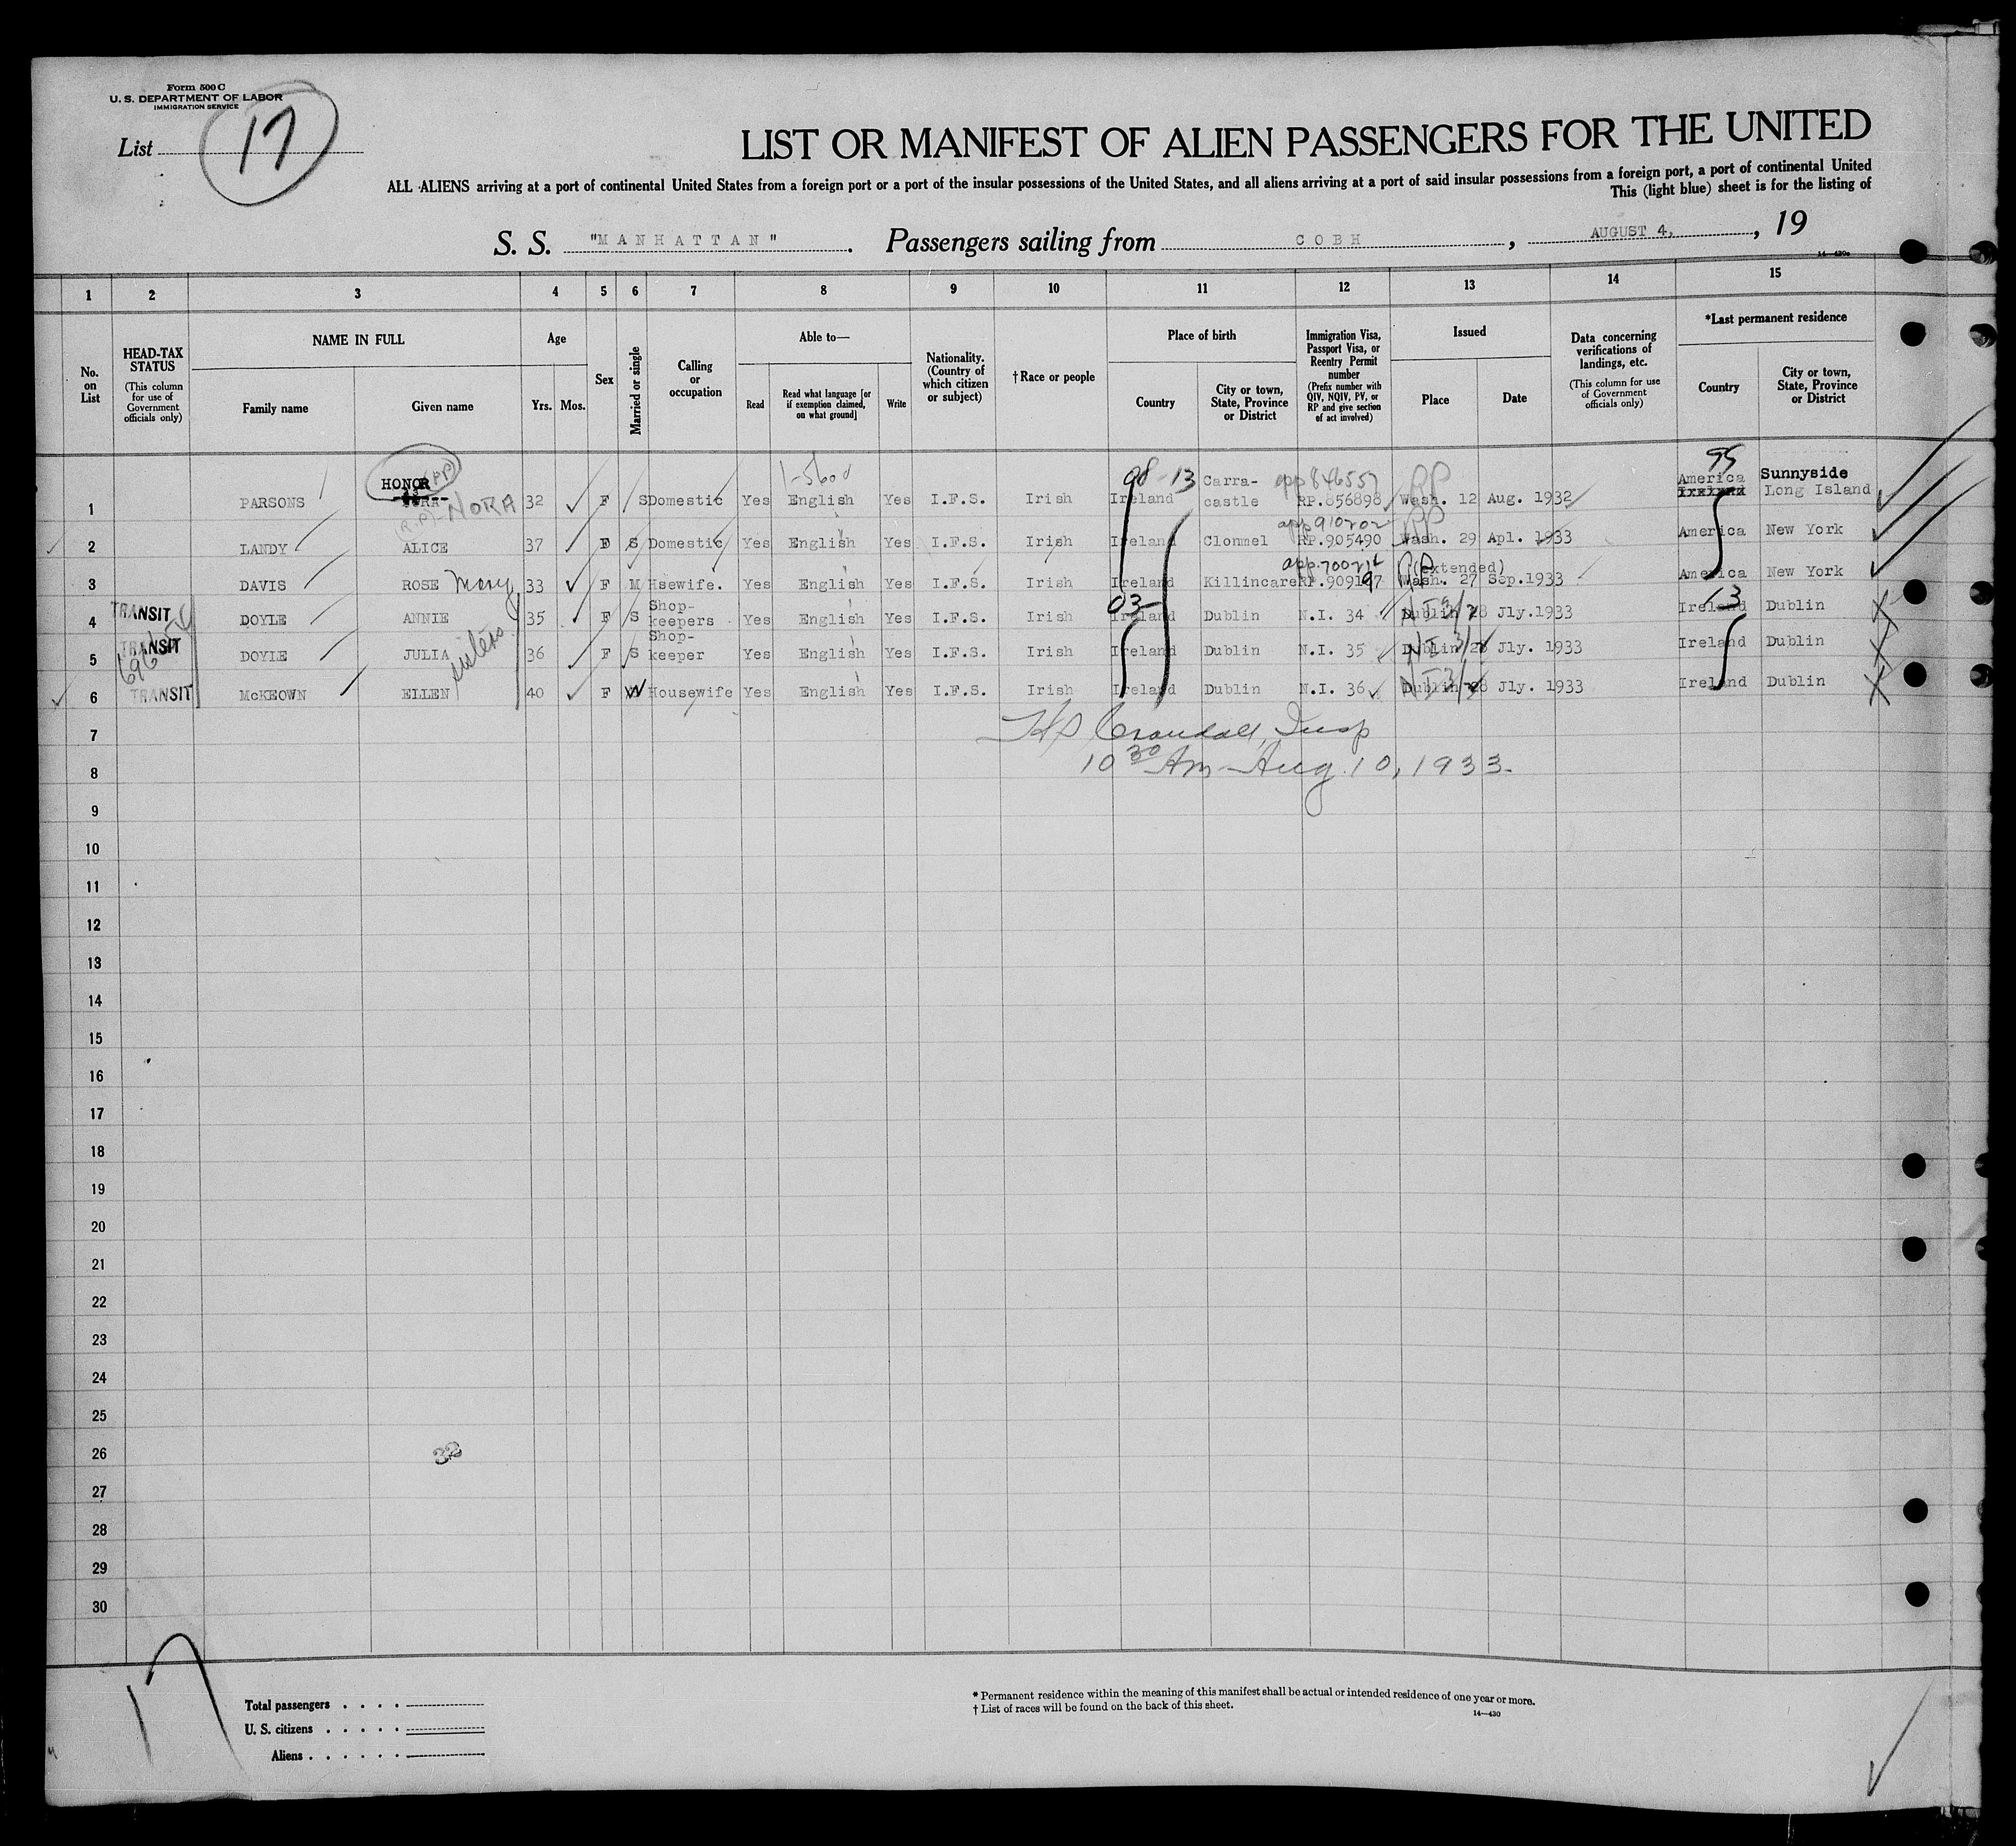 Form 500 C
U. S. DEPARTMENT OF LABOR
IMMIGRATION SERVICE
List 17
LIST OR MANIFEST OF ALIEN PASSENGERS FOR THE UNITED
ALL ALIENS arriving at a port of continental United States from a foreign port or a port of the insular possessions of the United States, and all aliens arriving at a port of said insular possessions from a foreign port, a port of continental United
This (light blue) sheet is for the listing of
S. S. "MANHATTAN". Passengers sailing from COBH, AUGUST 4, , 19
14—430c
1 2 3 4 5 6 7 8 9 10 11 12 13 14 15
No. on List
HEAD-TAX STATUS (This column for use of Government officials only)
NAME IN FULL
Family name
Given name
Age
Yrs. Mos.
Sex
Married or single
Calling or occupation
Able to—
Read
Read what language [or if exemption claimed, on what ground]
Write
Nationality. (Country of which citizen or subject)
†Race or people
Place of birth
Country
City or town, State, Province or District
Immigration Visa, Passport Visa, or Reentry Permit number (Prefix number with QIV, NQIV, PV, or RP and give section of act involved)
Issued
Place
Date
Data concerning verifications of landings, etc. (This column for use of Government officials only)
*Last permanent residence
Country
City or town, State, Province or District
HONOR (PP) 98-13 Carra- app 846557 RP 99 America Sunnyside
1 PARSONS (R.P)-NORA 32 F S Domestic Yes English Yes I.F.S. Irish Ireland castle RP.856898 Wash. 12 Aug. 1932 Long Island
app 910202 RP
2 LANDY ALICE 37 F S Domestic Yes English Yes I.F.S. Irish Ireland Clonmel RP.905490 Wash. 29 Apl. 1933 America New York
app. 700214 RP (extended)
3 DAVIS ROSE Mary 33 F M Hsewife. Yes English Yes I.F.S. Irish Ireland Killincare RP.909197 Wash. 27 Sep.1933 America New York
03 13
4 TRANSIT DOYLE ANNIE 35 F S Shop-keepers Yes English Yes I.F.S. Irish Ireland Dublin N.I. 34 Dublin 28 Jly.1933 Ireland Dublin
sisters
5 TRANSIT DOYLE JULIA 36 F S Shop-keeper Yes English Yes I.F.S. Irish Ireland Dublin N.I. 35 Dublin 28 Jly. 1933 Ireland Dublin
6 TRANSIT McKEOWN ELLEN 40 F W Housewife Yes English Yes I.F.S. Irish Ireland Dublin N.I. 36 Dublin 28 Jly. 1933 Ireland Dublin
7 Crandall, Insp
8 10 30 Am Aug 10, 1933.
9
10
11
12
13
14
15
16
17
18
19
20
21
22
23
24
25
26 32
27
28
29
30
17
Total passengers . . . .
U. S. citizens . . . . .
Aliens . . . . . .
* Permanent residence within the meaning of this manifest shall be actual or intended residence of one year or more.
† List of races will be found on the back of this sheet.
14—430